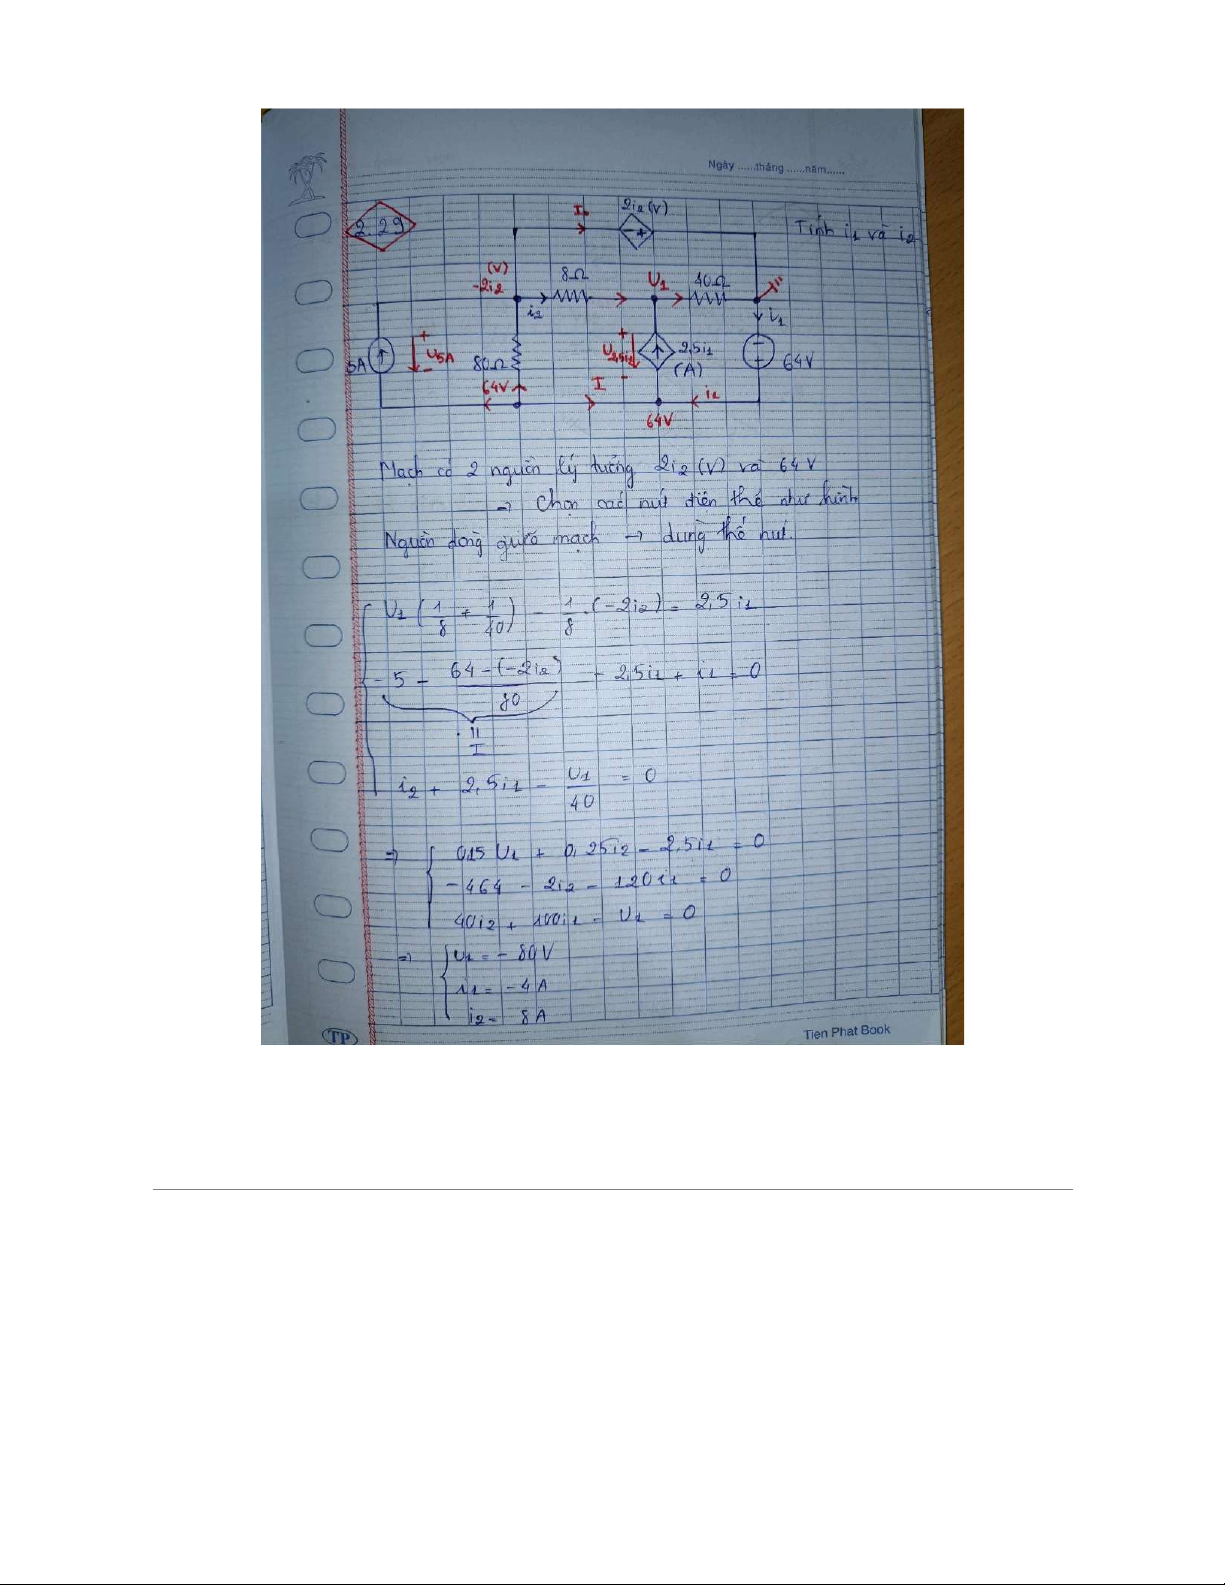 Ngày ......tháng ......năm......
2.29
2i₂ (V)
Tính i₁ và i₂
(V)
-2i₂
8Ω
U₁
40Ω
i₂
i₁
5A
U5A
80Ω
64V
I
U2,5i₁
2,5i₁
(A)
64V
i₁
64V
Mạch có 2 nguồn lý tưởng 2i₂ (V) và 64V
→ Chọn các nút điện thế như hình
Nguồn dòng giữa mạch → dùng thế nút.
U₁ (1/8 + 1/40) - 1/8 . (-2i₂) = 2,5 i₁
- 5 - (64 - (-2i₂))/80 - 2,5i₁ + i₁ = 0
= I
i₂ + 2,5i₁ - U₁/40 = 0
⇒ { 0,15 U₁ + 0,25i₂ - 2,5i₁ = 0
-464 - 2i₂ - 120i₁ = 0
40i₂ + 100i₁ - U₁ = 0
⇒ { U₁ = - 80V
i₁ = - 4A
i₂ = 8A
TP
Tien Phat Book